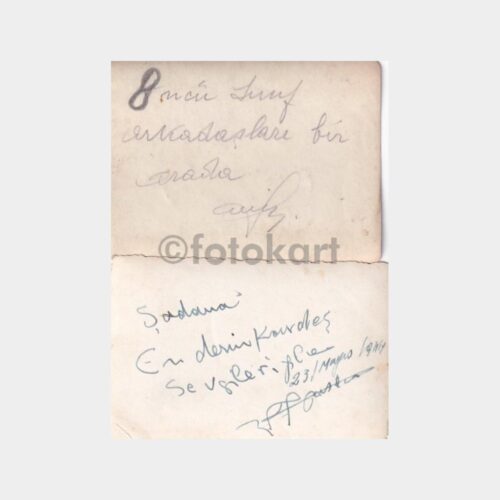 8 ncü Sınıf
arkadaşları bir
arada
©fotokart
Şadana
En derin kardeş
Sevgilerimle
23/Mayıs/944